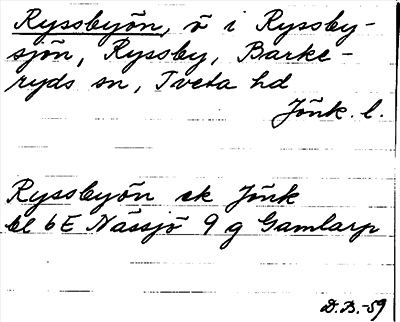 Ryssbyön, ö i Ryssby-
sjön, Ryssby, Barke-
ryds sn, Tveta hd
Jönk. l.
Ryssbyön ek Jönk
bl 6E Nässjö 9 g Gamlarp
D.B.-59